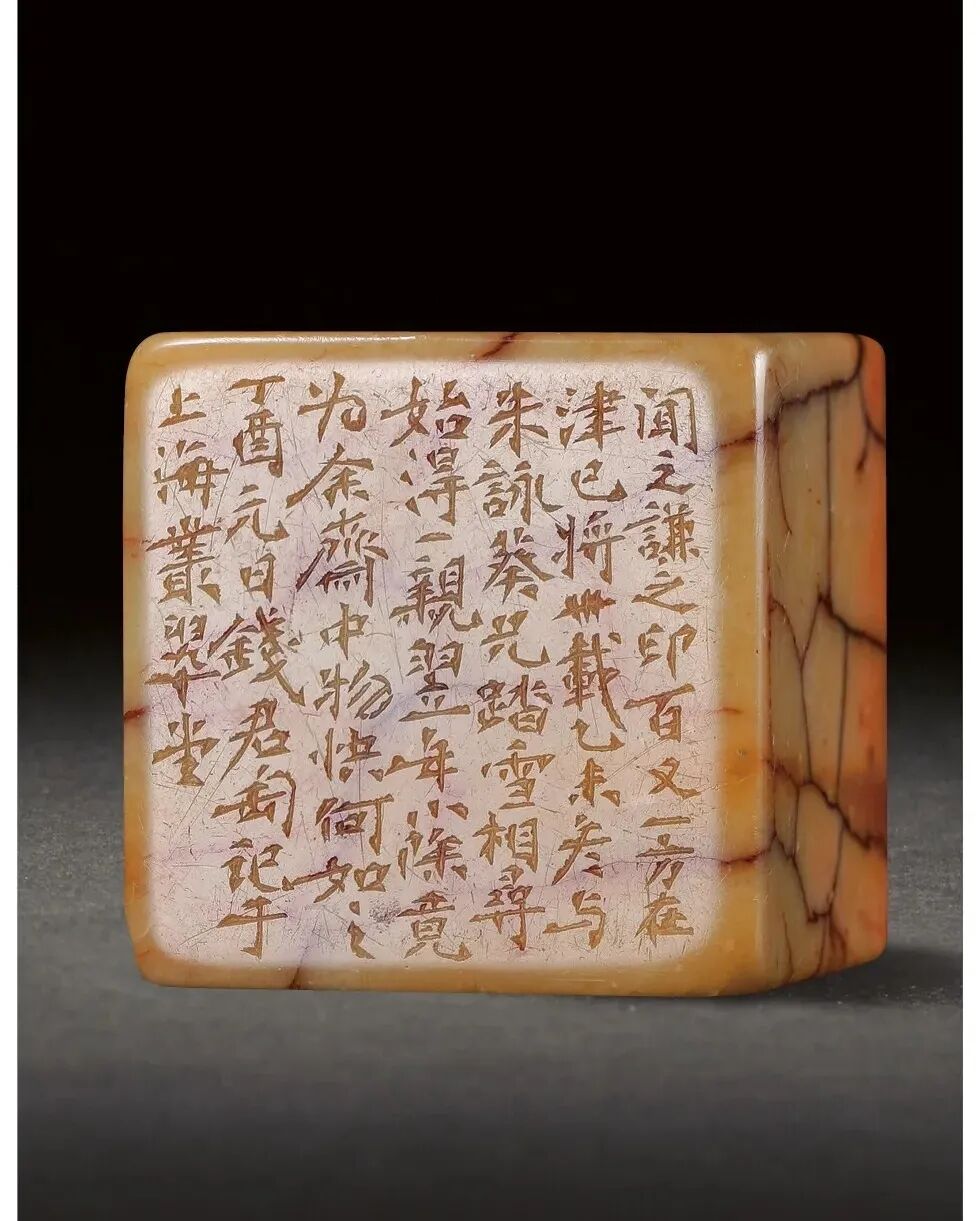 闻之謙之印百又一方在
津已将卌載乙未冬与
朱詠葵兄踏雪相尋
始得一親翌年小除竟
为余齋中物快何如之
丁酉元日錢君匋記于
上海叢翠堂